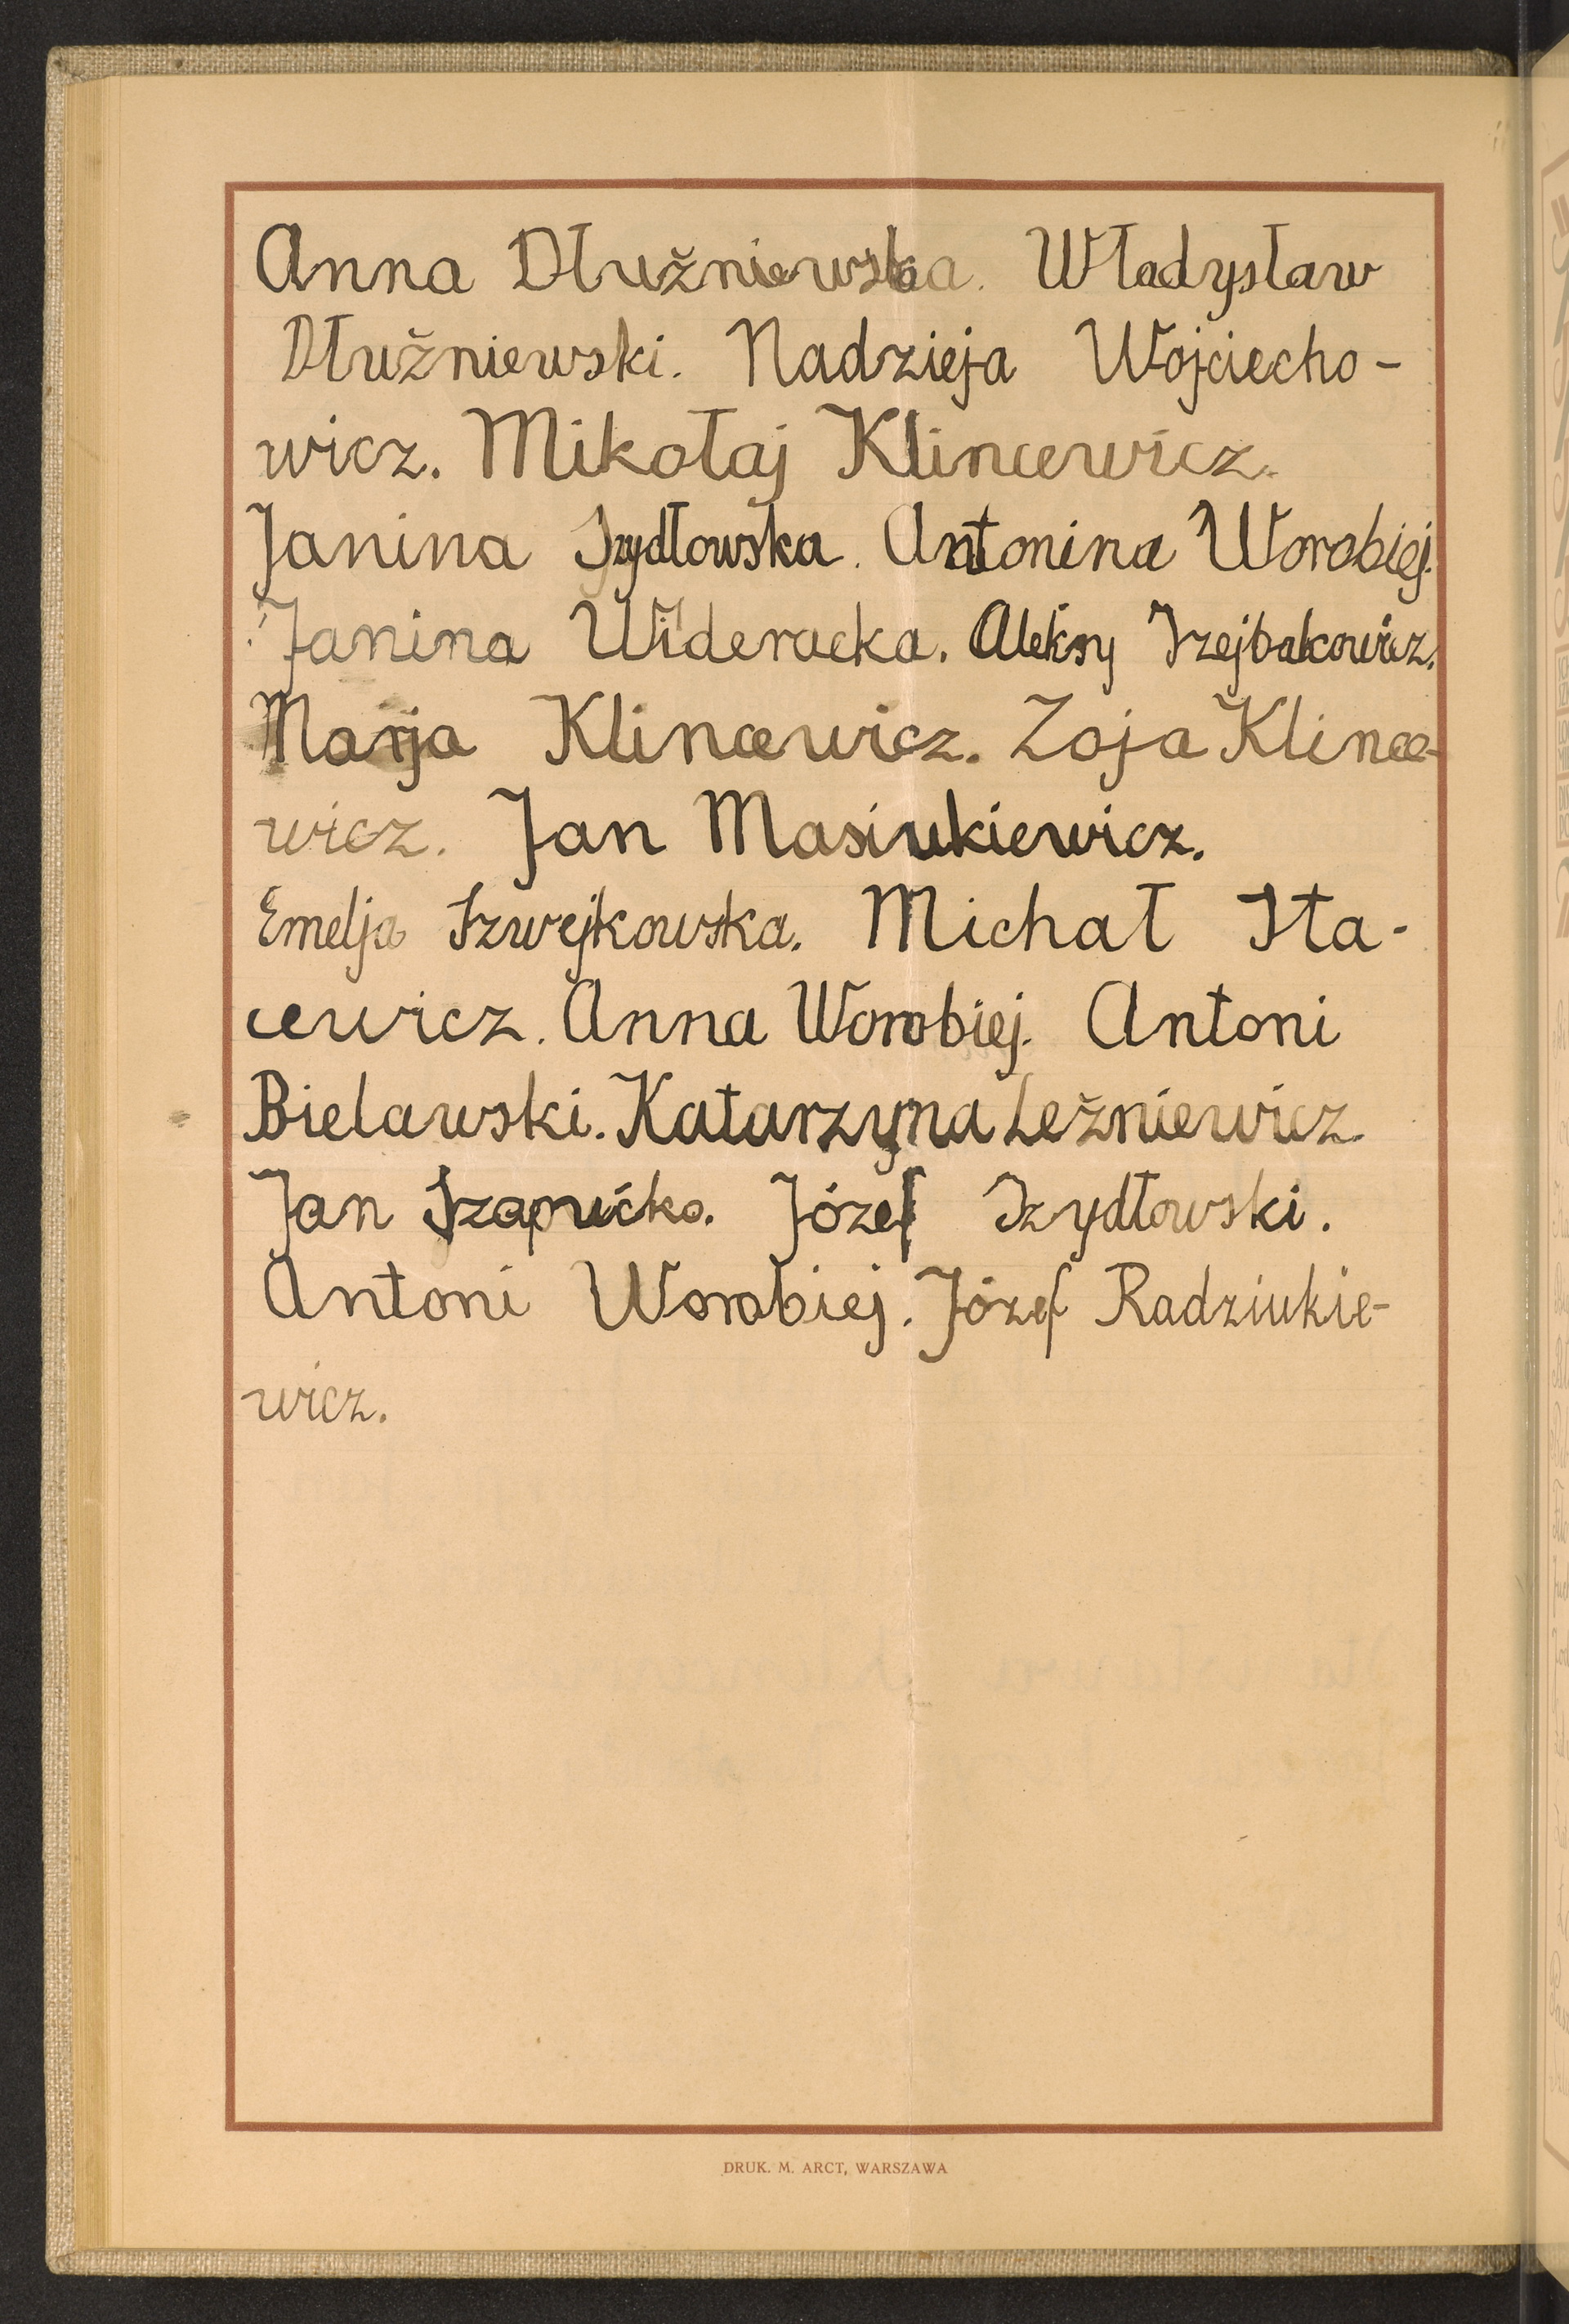 Anna Dłużniewska. Władysław
Dłużniewski. Nadzieja Wojciecho-
wicz. Mikołaj Klincewicz.
Janina Szydłowska. Antonina Worobiej.
Janina Wideracka. Aleksy Szejbakowicz.
Marja Klincewicz. Zoja Klince-
wicz. Jan Masiukiewicz.
Emelja Szwejkowska. Michał Sta-
cewicz. Anna Worobiej. Antoni
Bielawski. Katarzyna Leżniewicz.
Jan Szapućko. Józef Szydłowski.
Antoni Worobiej. Józef Radziukie-
wicz.
DRUK. M. ARCT, WARSZAWA